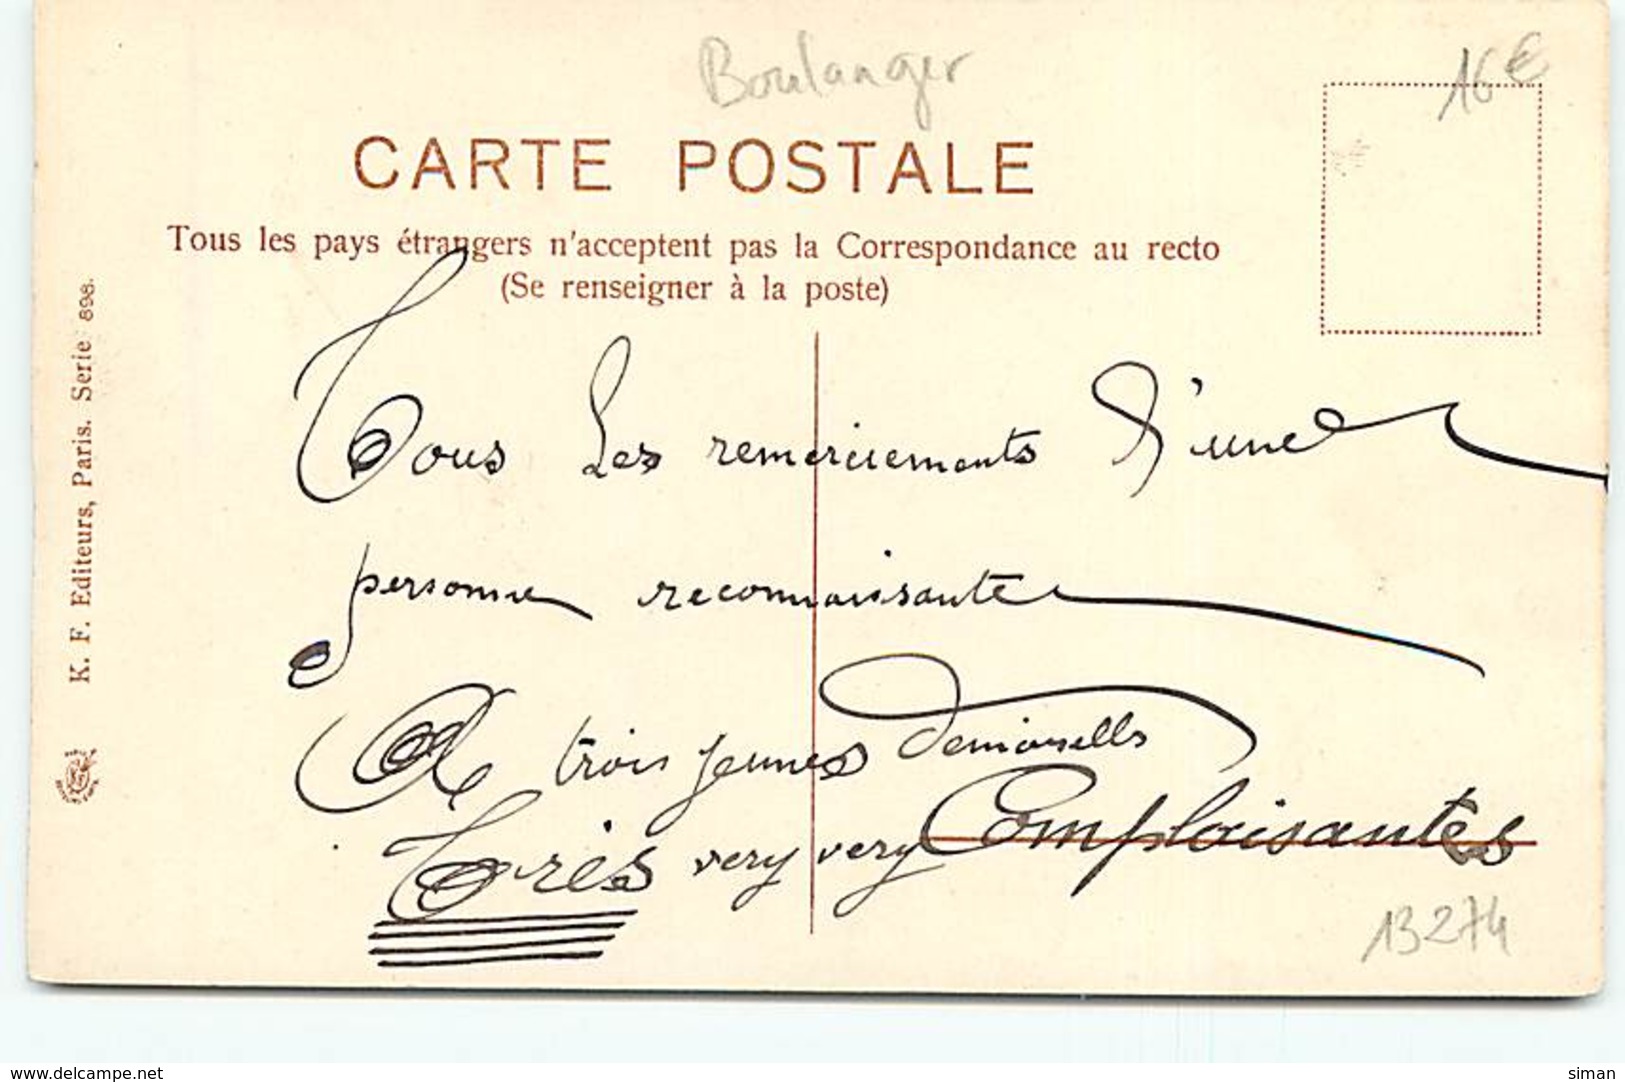 Boulanger
16€
CARTE POSTALE
Tous les pays étrangers n'acceptent pas la Correspondance au recto
(Se renseigner à la poste)
K. F. Editeurs, Paris. Serie 898.
Tous Les remerciements d'une
personne reconnaissante
A trois jeunes Demoiselles
Très very very Complaisantes
13274
www.delcampe.net
siman